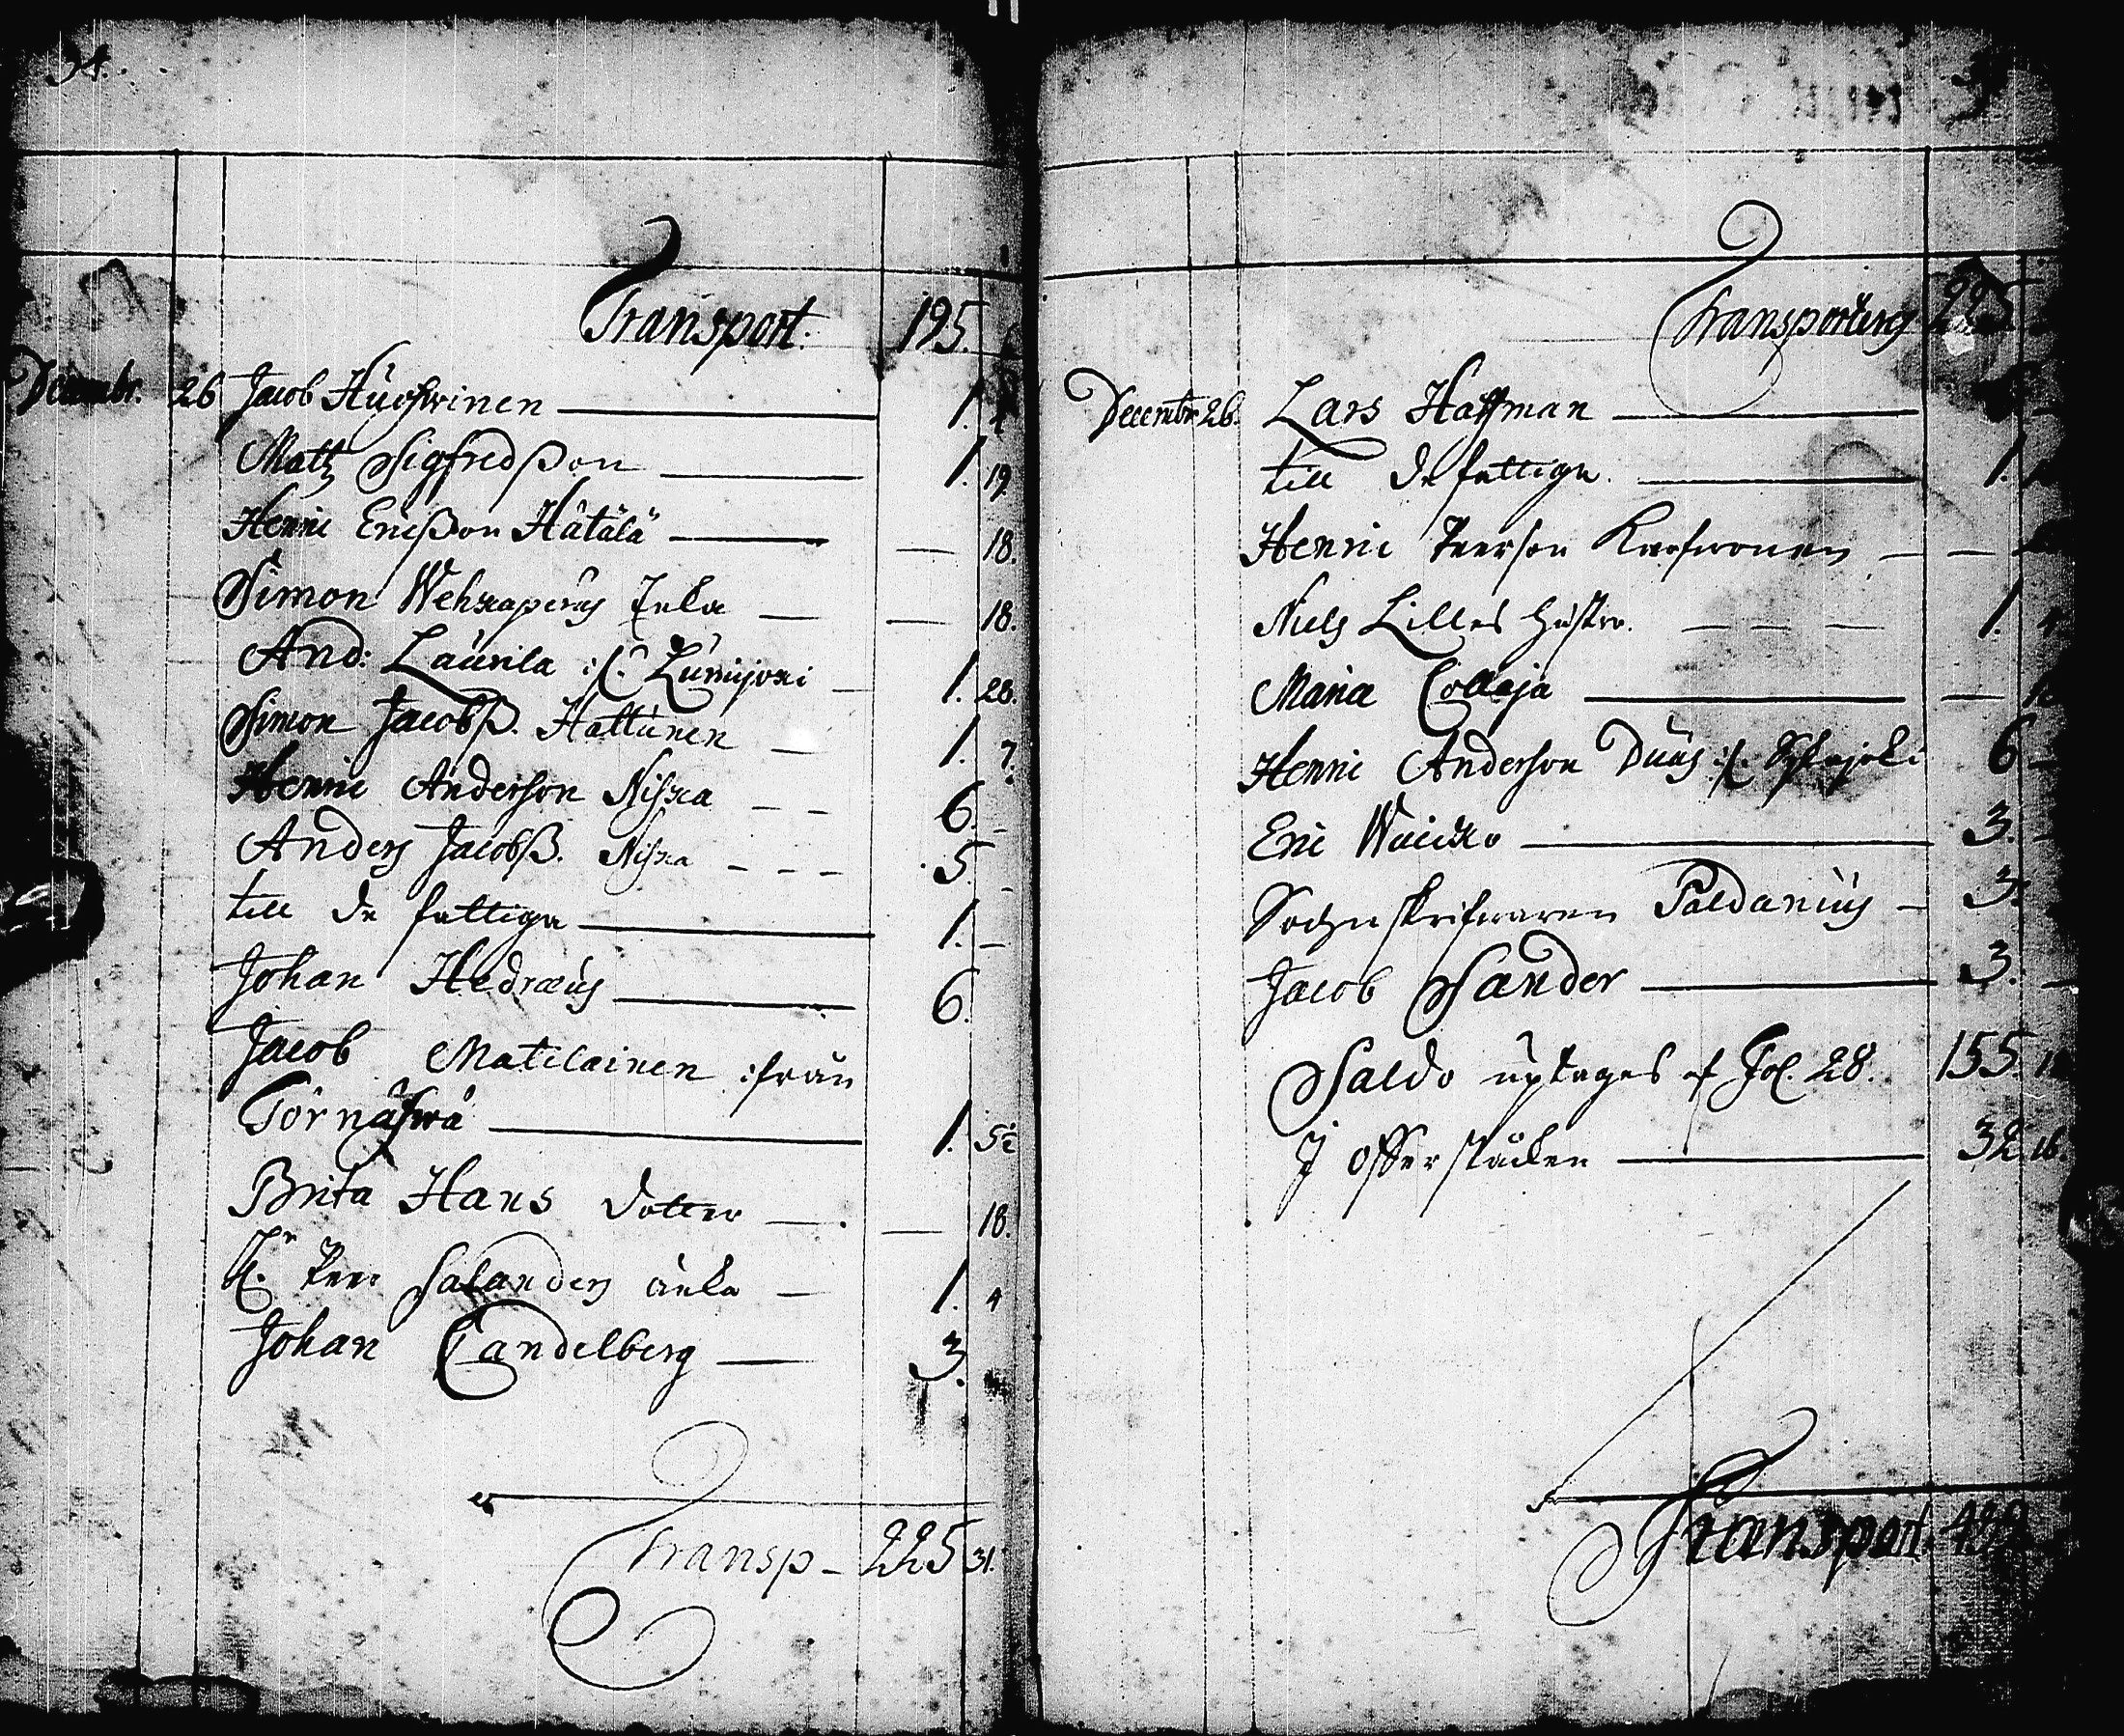 34.
Transport. 195.
Decembr. 26 Jacob Huchwinen — 1.
Matz Sigfredßon — 1. 19.
Henric Ericßon Hätälä — — 18.
Simon Wehkaperus Enka — — 18.
And: Laurila :/. Lumijoki — 1. 28.
Simon Jacobß. Hattunen — 1. 7.
Henric Anderson Niska — — 6. –
Anders Jacobß. Niska — — — 5. –
till de fattiga — 1. –
Johan Hedræus — 6.
Jacob Matilainen ifrån
Törnäfwä — 1. 5½
Brita Hans dotter — — 18.
H. Peer Salanders änka — 1. 4
Johan Candelberg — 3.
Transp – 225 31.
Transporteres 225
Decembr 26. Lars Haffman —
till de fattiga. — 1.
Henric Peerson — —
Niels Lilles hustro. — — — 1.
Maria Collaja — —
Henric Anderson Duus :/. 6 –
Eric Waicko — 3. –
Sochnskrifwaren Paldanius – 3.
Jacob Sander — 3. –
Saldo uptages af Fol. 28. 155.
J Offerstäcken — 32. 16.
Transport 439